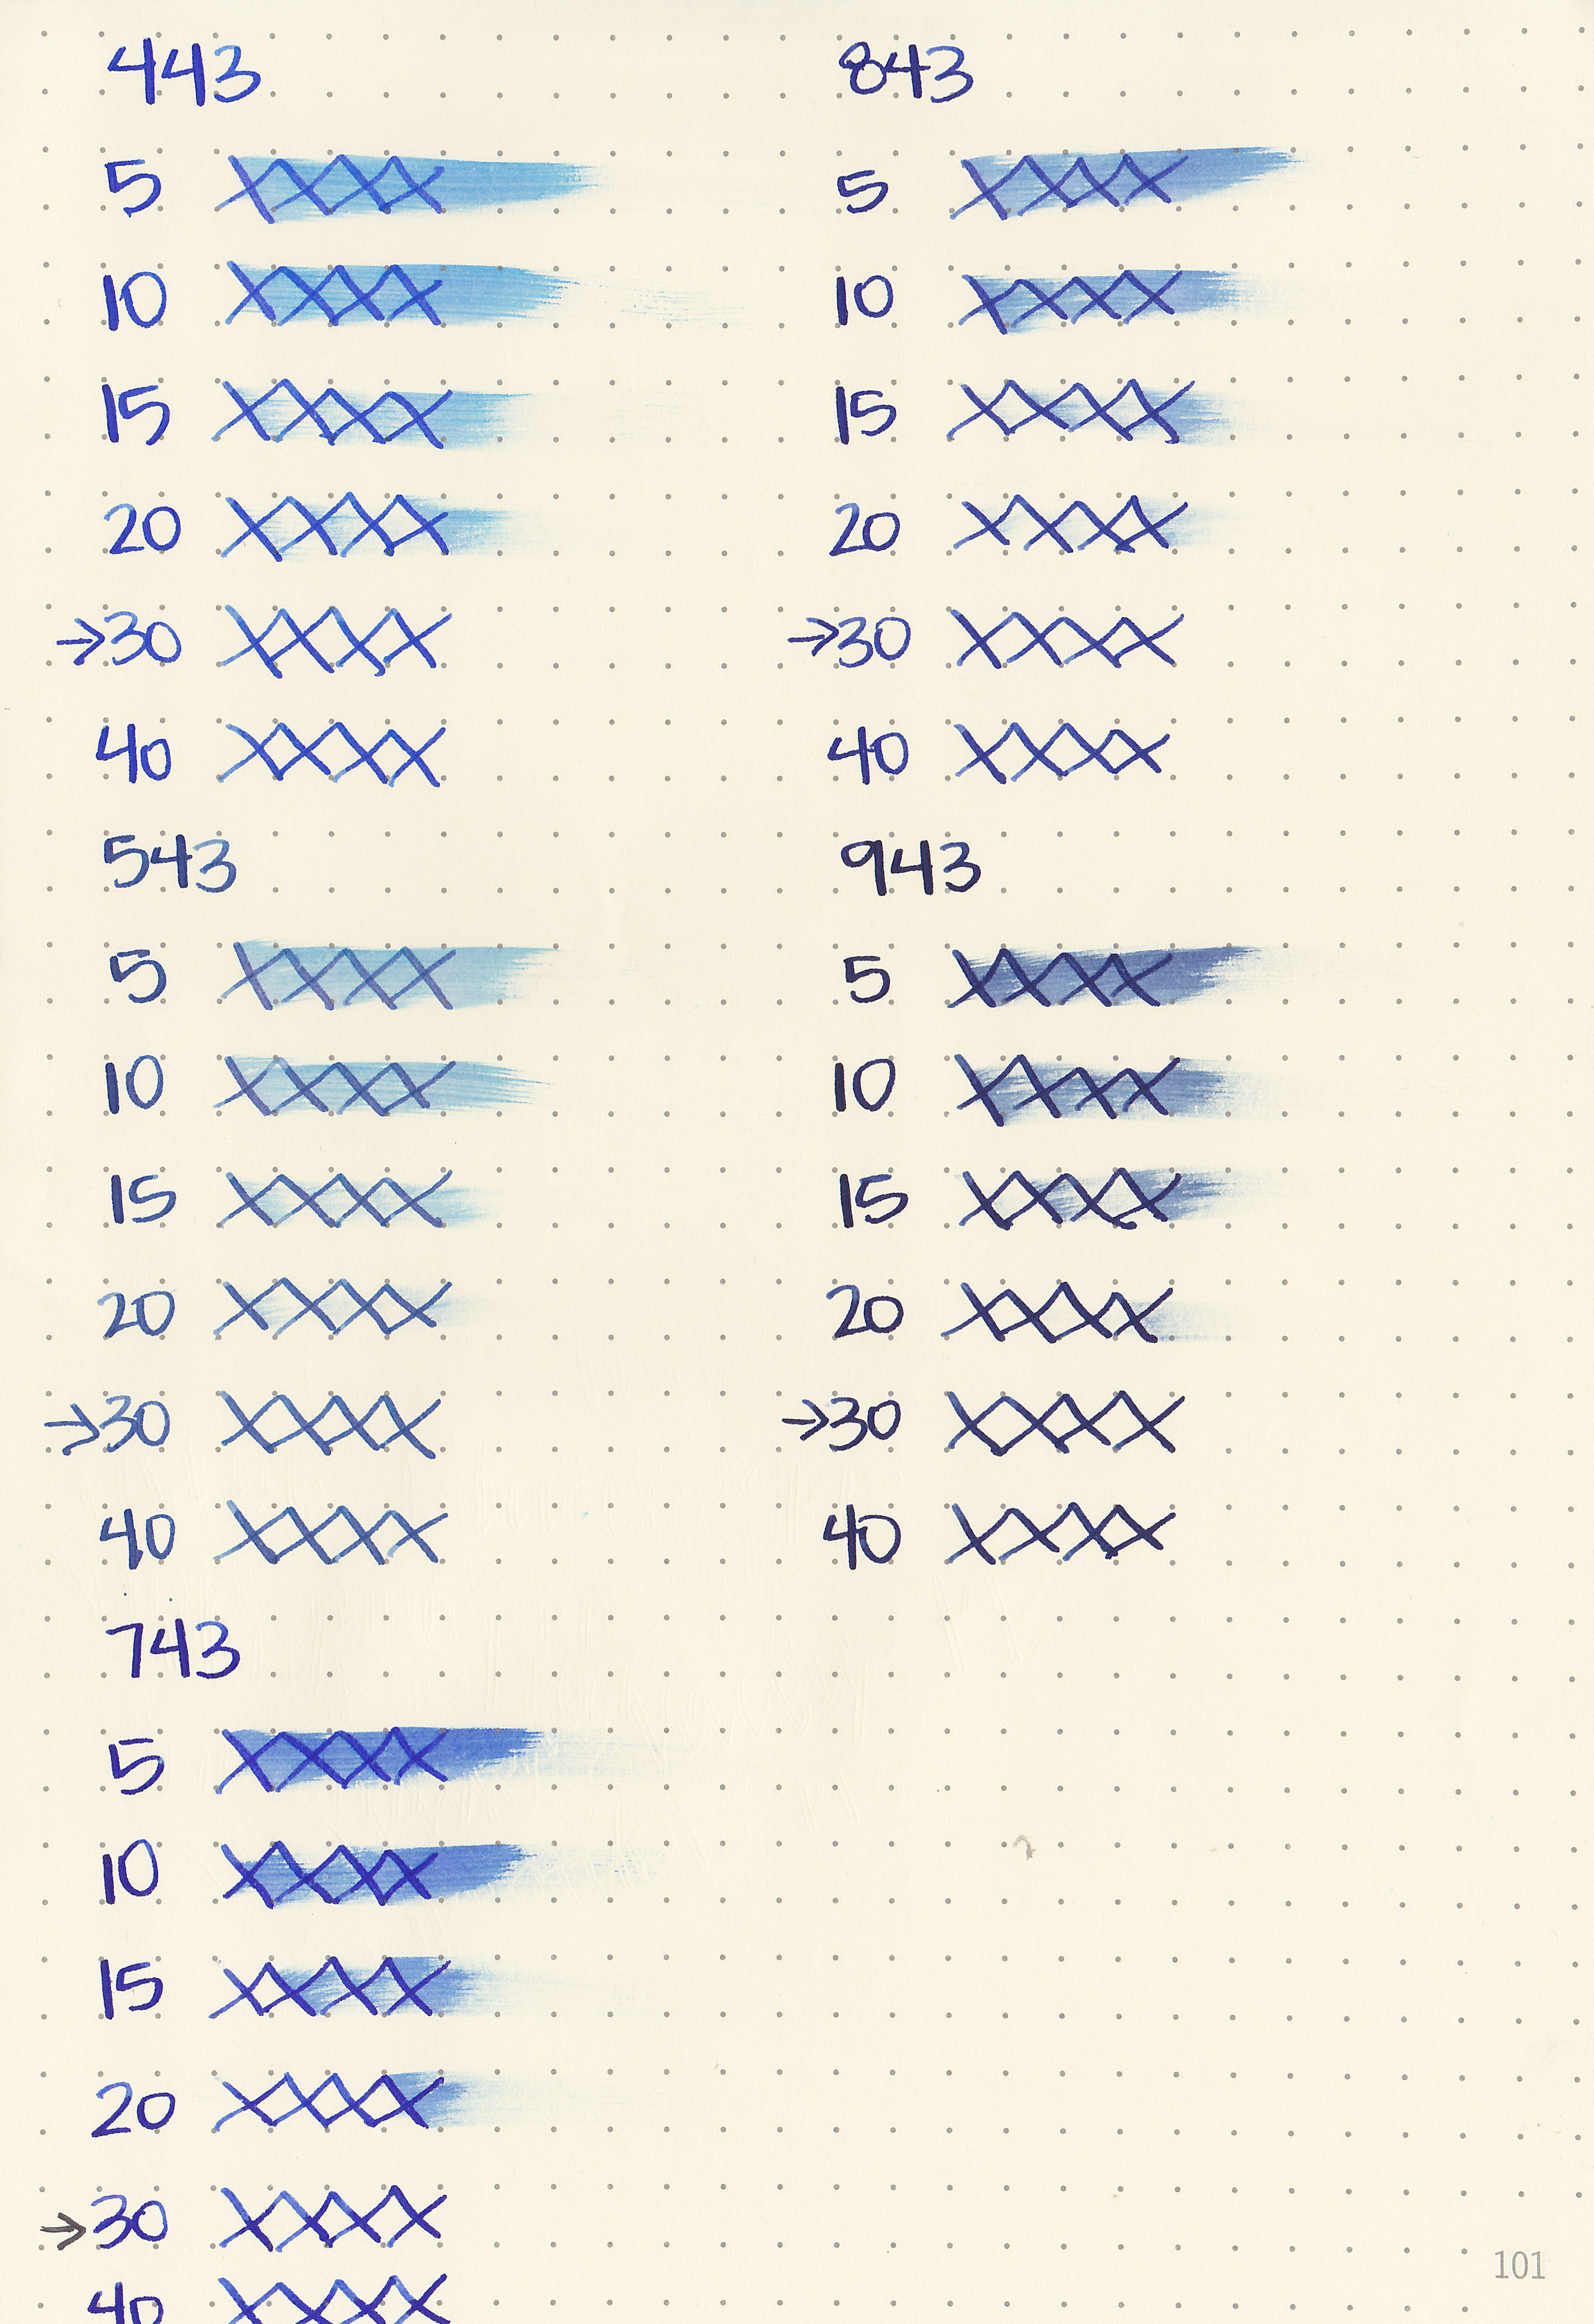 443
5 XXXX
10 XXXX
15 XXXX
20 XXXX
→30 XXXX
40 XXXX
543
5 XXXX
10 XXXX
15 XXXX
20 XXXX
→30 XXXX
40 XXXX
743
5 XXXX
10 XXXX
15 XXXX
20 XXXX
→30 XXXX
40 XXXX
843
5 XXXX
10 XXXX
15 XXXX
20 XXXX
→30 XXXX
40 XXXX
943
5 XXXX
10 XXXX
15 XXXX
20 XXXX
→30 XXXX
40 XXXX
101